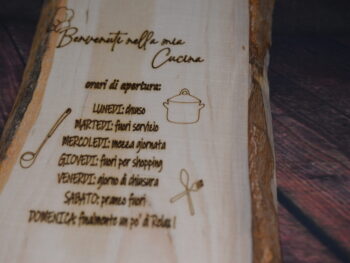 Benvenuti nella mia
Cucina
orari di apertura:
LUNEDI: chiuso
MARTEDI: fuori servizio
MERCOLEDI: mezza giornata
GIOVEDI: fuori per shopping
VENERDI: giorno di chiusura
SABATO: pranzo fuori
DOMENICA: finalmente un po' di Relax!